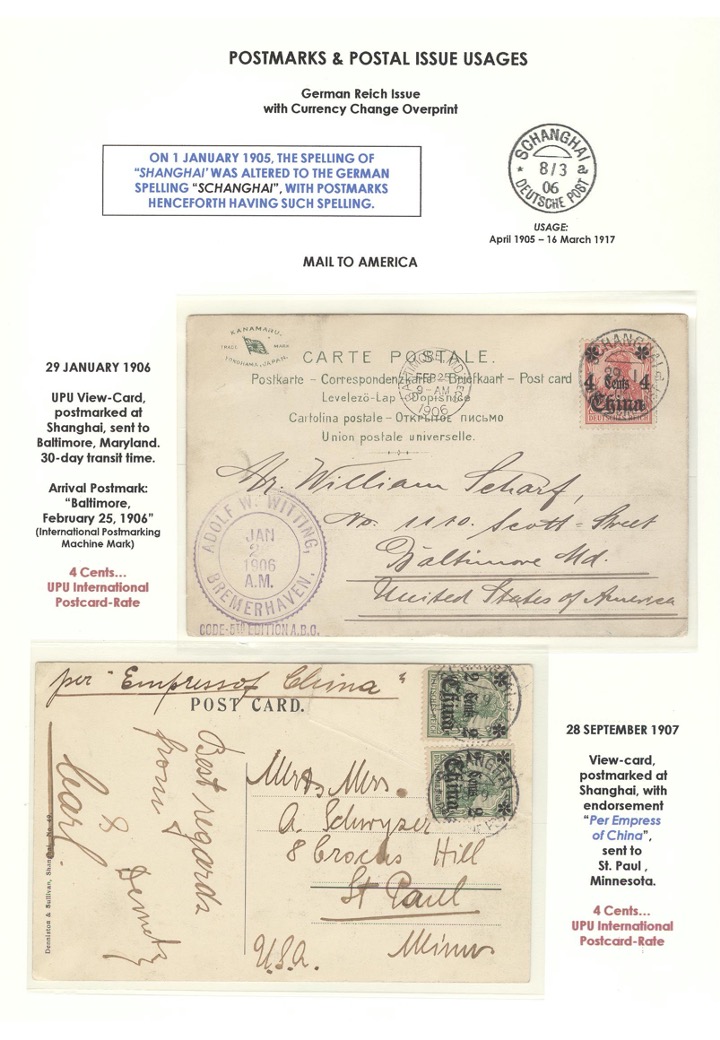 POSTMARKS & POSTAL ISSUE USAGES
German Reich Issue
with Currency Change Overprint
ON 1 JANUARY 1905, THE SPELLING OF
“SHANGHAI’ WAS ALTERED TO THE GERMAN
SPELLING “SCHANGHAI”, WITH POSTMARKS
HENCEFORTH HAVING SUCH SPELLING.
* SCHANGHAI a
8/3
06
DEUTSCHE POST
USAGE:
April 1905 – 16 March 1917
MAIL TO AMERICA
29 JANUARY 1906
UPU View-Card,
postmarked at
Shanghai, sent to
Baltimore, Maryland.
30-day transit time.
Arrival Postmark:
“Baltimore,
February 25, 1906”
(International Postmarking
Machine Mark)
4 Cents...
UPU International
Postcard-Rate
KANAMARU.
TRADE MARK
YOKOHAMA, JAPAN.
CARTE POSTALE.
Postkarte – Correspondenzkarte – Briefkaart – Post card
Levelező-Lap – Dopisnice
Cartolina postale – Открытое письмо
Union postale universelle.
BALTIMORE, MD.
FEB 25
9 - AM
1906
SCHANGHAI
4 Cents 4
China
DEUTSCHES REICH
Mr. William Scharf,
No. 1110. Scott-Street
Baltimore Md.
United States of America
ADOLF W. WITTING,
JAN
1906
A.M.
BREMERHAVEN.
CODE-5TH EDITION A.B.C.
per "Empress of China"
POST CARD.
2 Cents 2
China
2 Cents 2
China
Best regards
from
Carl
Denniston & Sullivan, Shanghai.
Mr & Mrs.
A. Schwyzer
8 Crocus Hill
St Paul
Minn
U.S.A.
28 SEPTEMBER 1907
View-card,
postmarked at
Shanghai, with
endorsement
“Per Empress
of China”,
sent to
St. Paul ,
Minnesota.
4 Cents...
UPU International
Postcard-Rate